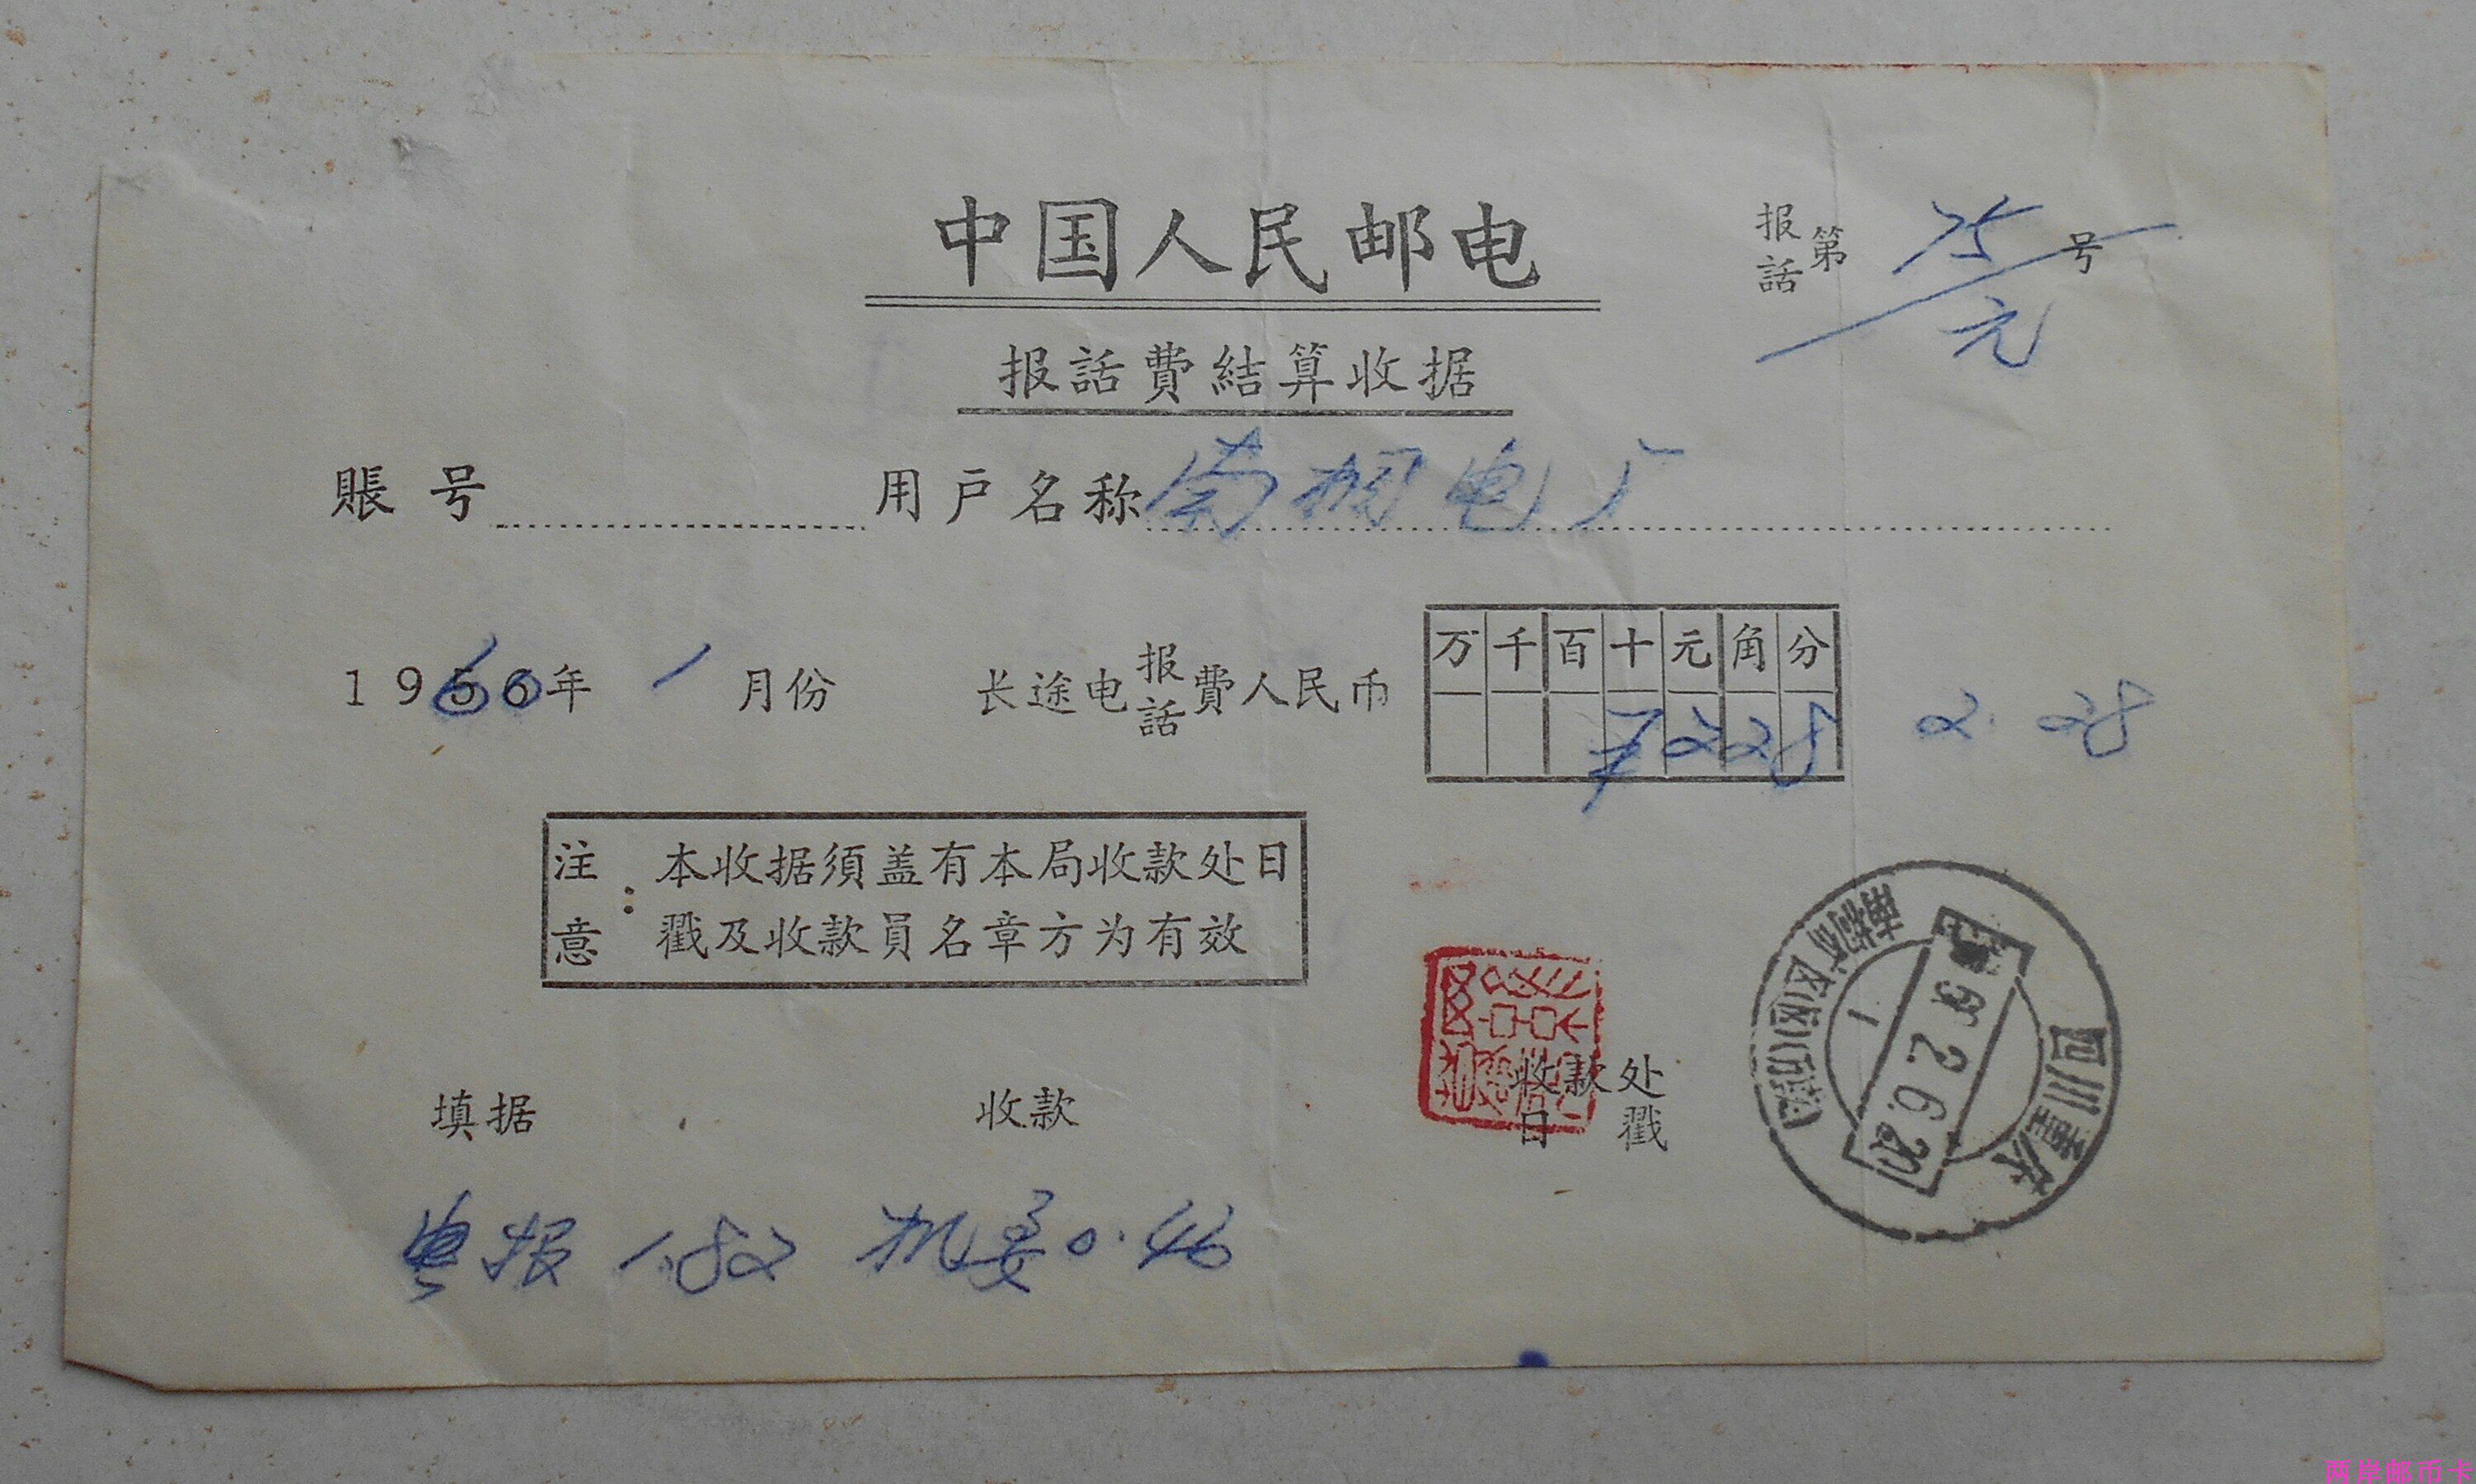 中国人民邮电
报話第 75/元 号
报話費結算收据
賬号 用户名称 南桐电厂
1960年 1 月份 长途电报話費人民币 万千百十元角分 ¥228 2.28
注意：本收据須盖有本局收款处日
戳及收款員名章方为有效
填据 收款 收款处
日戳
四川重庆
2.6.20
1
电报 1.82 机要 0.46
两岸邮币卡